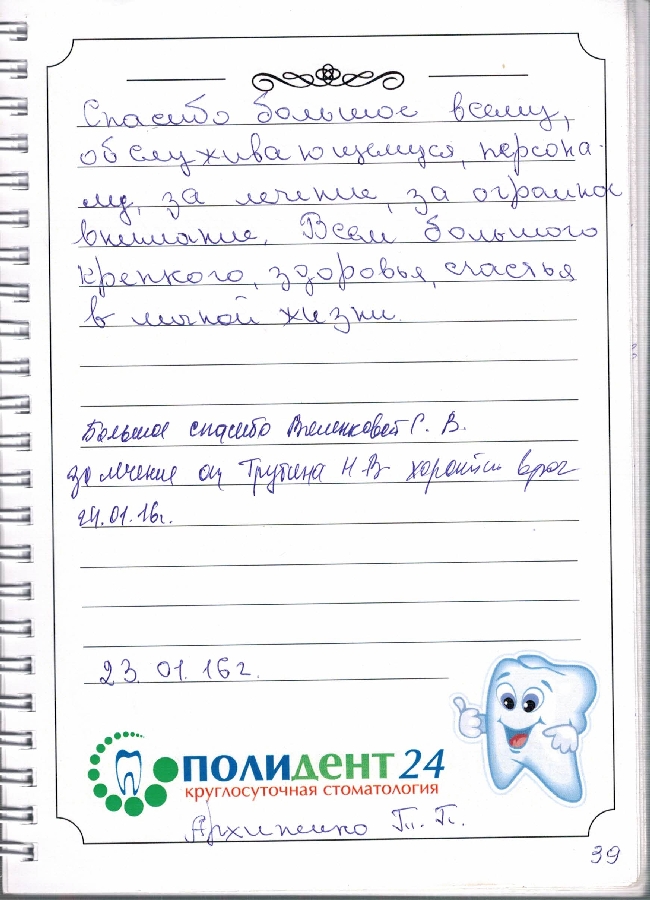 Спасибо большое всему,
обслуживающемуся, персона-
лу, за лечение, за огромное
внимание. Всем большого
крепкого, здоровья, счастья
в личной жизни.
Большое спасибо Г. В.
за лечение от Н В хороший врач
24.01.16г.
23.01.16г.
ПОЛИДЕНТ 24
круглосуточная стоматология
Архипенко Т. П.
39